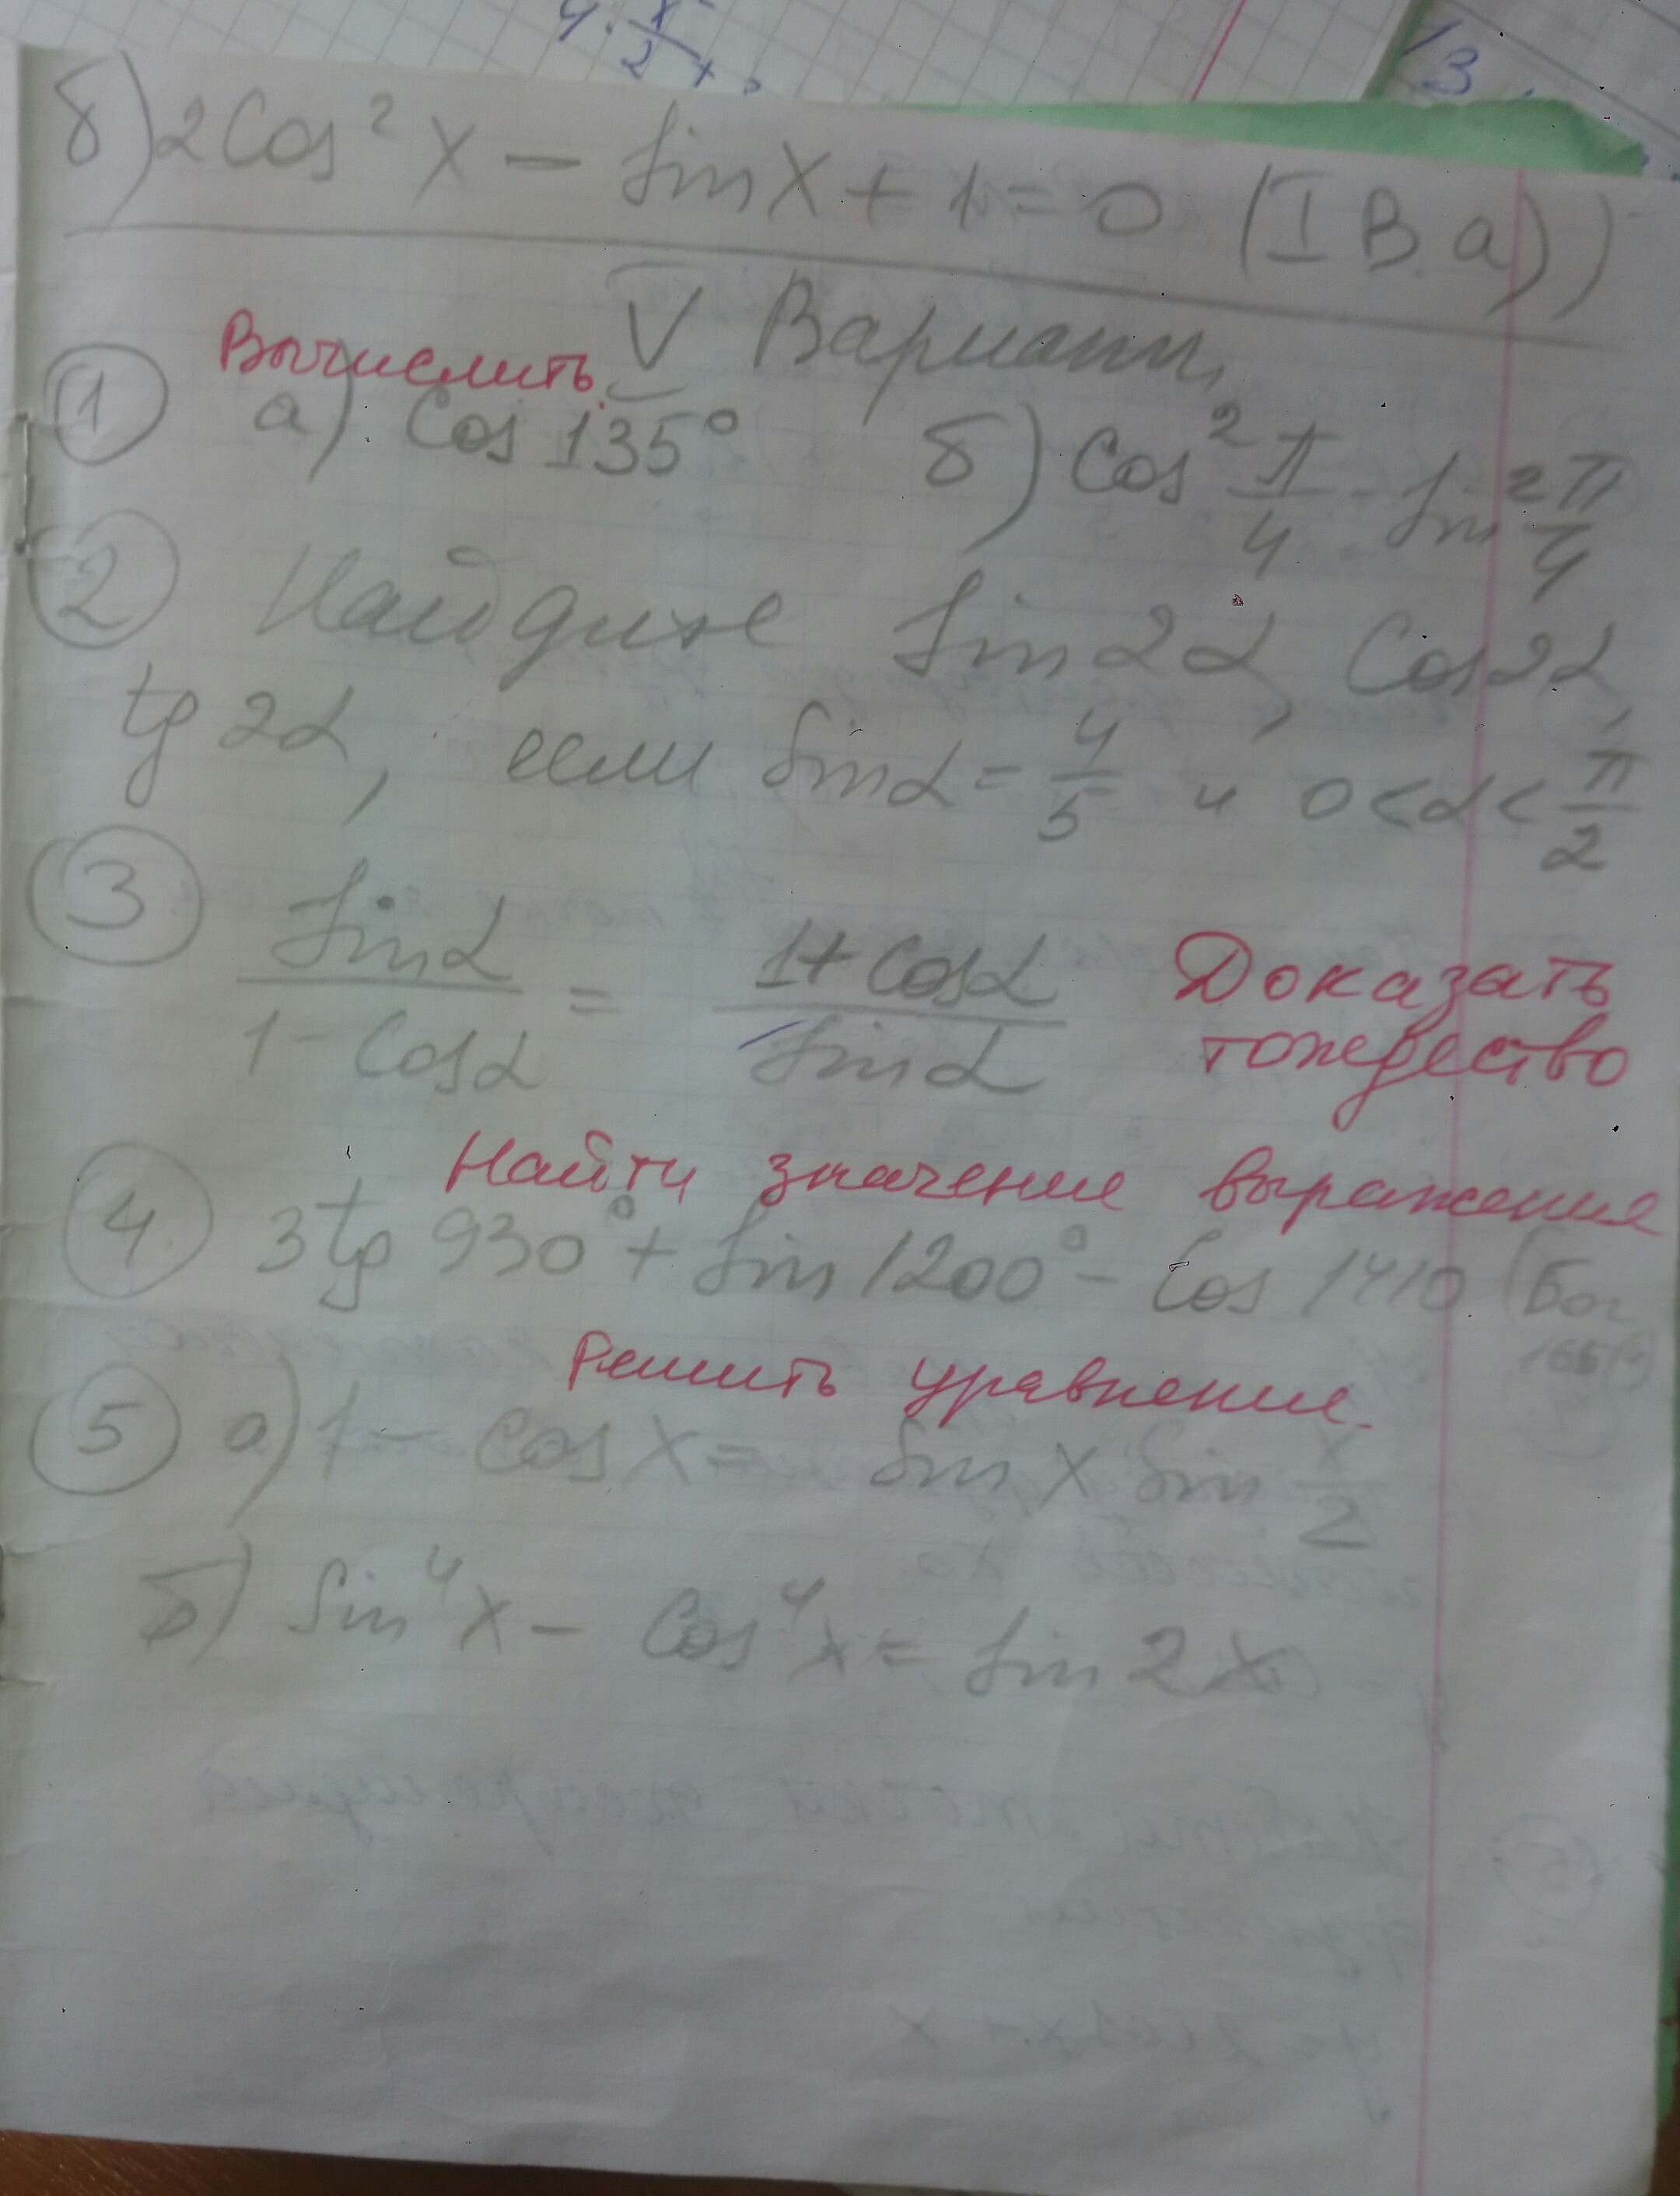 б) 2Cos²x − Sinx + 1 = 0 (I В. а))
V Вариант
Вычислить
① а) Cos 135° б) Cos² π/4 - Sin² π/4
② Найдите Sin2α, Cos2α,
tg 2α, если Sinα = 4/5 и 0<α< π/2
③ Sinα / 1 - Cosα = 1+ Cosα / Sinα Доказать
тождество
Найти значение выражения
④ 3tg 930° + Sin 1200° - Cos 1410 (Бог
Решить уравнение.
⑤ а) 1 - Cos x = Sin x Sin x/2
б) Sin⁴x - Cos⁴x = Sin 2x